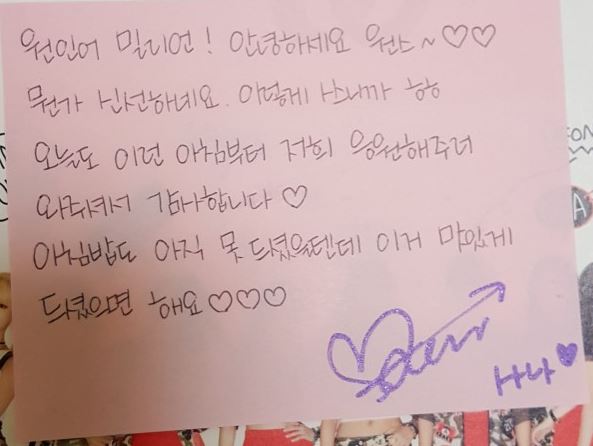 원인어 밀리언! 안녕하세요 원스~♡♡
뭔가 신선하네요. 이렇게 쓰니까 ㅎㅎ
오늘도 이런 아침부터 저희 응원해주러
와줘서 감사합니다 ♡
아침밥도 아직 못 드셨을텐데 이거 맛있게
드셨으면 해요♡♡♡
사나♥